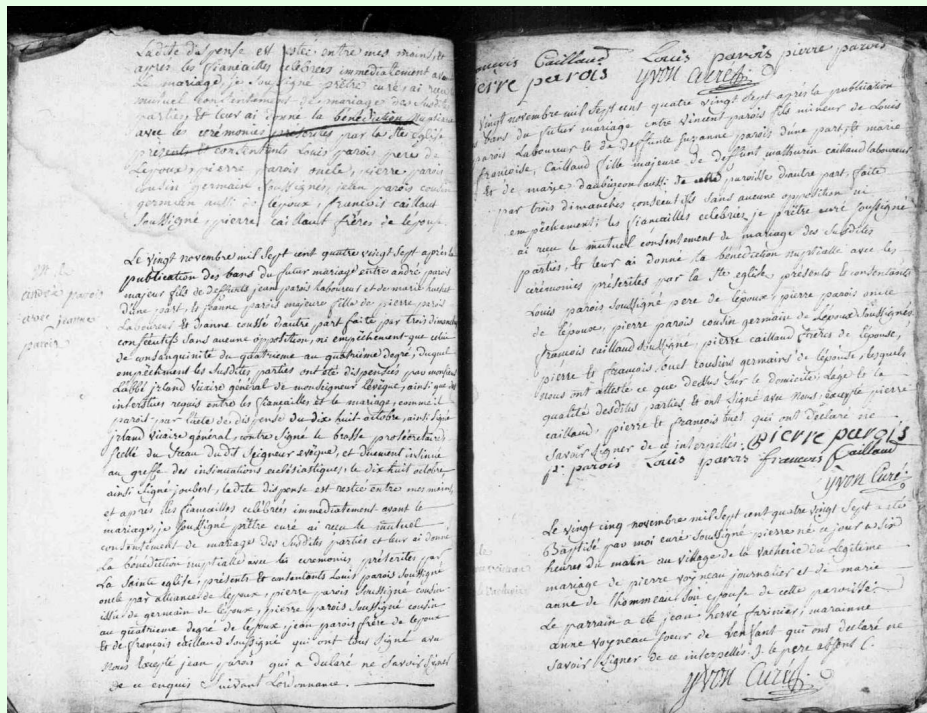 Ladite dispense est restée entre mes mains, et
après les fiancailles célébrées immédiatement
le mariage, je soussigné prêtre curé ai recu
mutuel consentement de mariage des susdites
parties et leur ai donné la bénédiction nuptiale
avec les cérémonies prescrites par la Ste église
présents et consentants Louis parois pere de
lépoux, pierre parois oncle, pierre parois
cousin germain soussignés, jean parois cousin
germain aussi de lepoux, francois caillaut
soussigné, pierre caillaut frères de lépouse.
Le vingt novembre mil sept cent quatre vingt sept après la
publication des bans du futur mariage entre andré parois
majeur fils de deffunts jean parois laboureur et de marie
d'une part, et jeanne parois majeure fille de pierre parois
laboureur et danne cousse dautre part faite par trois dimanches
consécutifs sans aucune opposition, ni empêchement que celui
de consanguinité du quatrieme au quatrieme degré, duquel
empêchement les susdites parties ont été dispensées par monsieur
Labbé jrland vicaire général de monseigneur levêque, ainsi que des
interstices requis entre les fiancailles et le mariage, comme il
paroit par lacte de dispense du dix huit octobre, ainsi signé
jrland vicaire général, contre signé le brasse prosécretaire,
scellé du sceau dudit seigneur evêque, et duement insinué
au greffe des insinuations eclésiastiques, le dix huit octobre
ainsi signé joubert, ladite dispense est restée entre mes mains
et après les fiancailles célébrées immédiatement avant le
mariage, je soussigné prêtre curé ai recu le mutuel
consentement de mariage des susdites parties et leur ai donné
la bénédiction nuptialle avec les cérémonies prescrites par
La Sainte eglise, présents et consentants Louis parois soussigné
oncle par alliance de lepoux, pierre parois soussigné cousin
issu de germain de lepoux, pierre parois soussigné cousin
au quatrieme degré de lepoux jean parois frere de lepoux
et de francois caillaud soussigné qui ont tous signé avec
Nous excepté jean parois qui a declaré ne savoir signer
de ce enquis suivant Lordonnance.
andré parois
avec jeanne
parois
Caillaud Louis parois pierre parois
pierre parois yvon curé
vingt novembre mil sept cent quatre vingt sept après la publication
bans du futur mariage entre vincent parois fils mineur de Louis
parois Laboureur et de deffunte suzanne parois dune part, et marie
francoise Caillaud fille majeure de deffunt mathurin caillaud laboureur
et de marie daubigeon aussi de cette paroisse dautre part, faite
par trois dimanches consecutifs sans aucune opposition ni
empêchement; les fiancailles celebrées, je prêtre curé soussigné
ai recu le mutuel consentement de mariage des susdites
parties, et leur ai donné la benediction nuptialle avec les
cérémonies prescrites par la Ste eglise, présents et consentants
Louis parois soussigné pere de lépoux, pierre parois oncle
de lépoux, pierre parois cousin germain de Lepoux soussignés
françois caillaud soussigné, pierre caillaud freres de lépouse,
pierre et francois buet cousins germains de lépouse, lesquels
Nous ont attesté ce que dessus sur le domicile, lage et la
qualité desdites parties et ont signé avec Nous, excepté pierre
caillaud, pierre et francois buet qui ont declaré ne
savoir signer de ce interpellés. pierre parois
p. parois Louis parois françois Caillaud
yvon Curé
Le vingt cinq novembre mil sept cent quatre vingt sept a été
Baptisé par moi curé soussigné pierre né ce jour a
heures du matin au village de la vacherie du legitime
mariage de pierre voyneau journalier et de marie
anne de lhommeau son epouse de cette paroisse.
Le parrain a été jean hervé farinier, marainne
anne voyneau soeur de Lenfant qui ont declaré ne
savoir signer de ce interpellés. le pere absent
yvon Curé